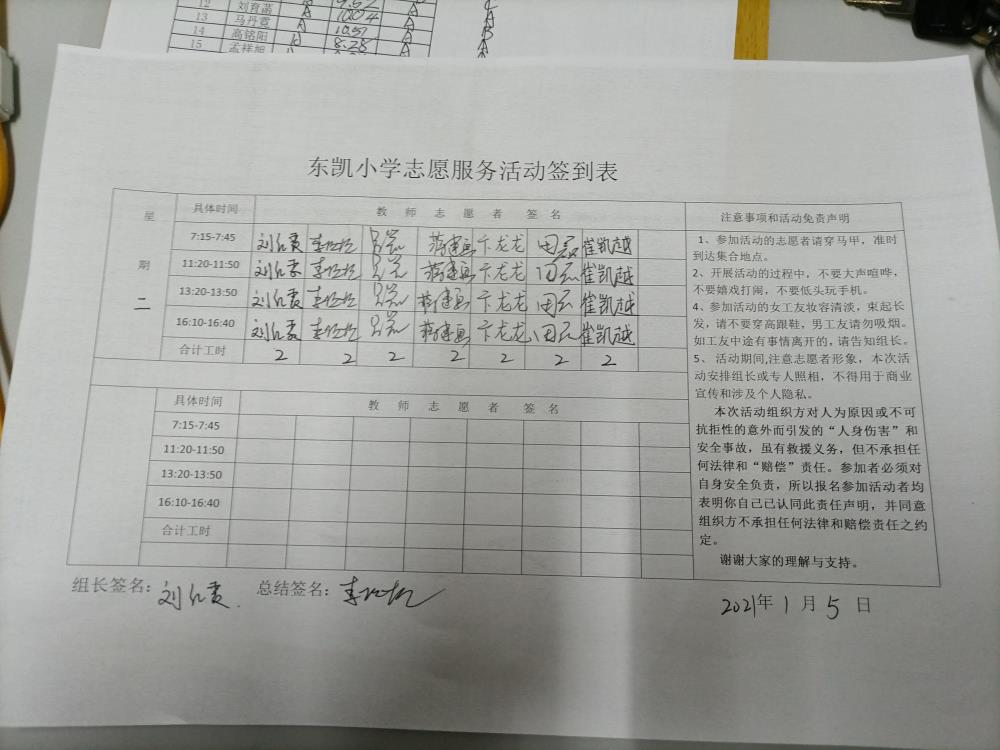 12 刘育菡 A 9.52 A C
13 马丹霓 A 10.04 A A
14 高铭阳 A 10.57 A B
15 孟祥旭 8.28 A A
东凯小学志愿服务活动签到表
星期二
具体时间 教师志愿者签名
7:15-7:45 卞龙龙 崔凯越
11:20-11:50 卞龙龙 崔凯越
13:20-13:50 卞龙龙 崔凯越
16:10-16:40 卞龙龙 崔凯越
合计工时 2 2 2 2 2 2 2
具体时间 教师志愿者签名
7:15-7:45
11:20-11:50
13:20-13:50
16:10-16:40
合计工时
注意事项和活动免责声明
1、参加活动的志愿者请穿马甲，准时
到达集合地点。
2、开展活动的过程中，不要大声喧哗，
不要嬉戏打闹，不要低头玩手机。
4、参加活动的女工友妆容清淡，束起长
发，请不要穿高跟鞋，男工友请勿吸烟。
如工友中途有事情离开的，请告知组长。
5、活动期间,注意志愿者形象，本次活
动安排组长或专人照相，不得用于商业
宣传和涉及个人隐私。
本次活动组织方对人为原因或不可
抗拒性的意外而引发的“人身伤害”和
安全事故，虽有救援义务，但不承担任
何法律和“赔偿”责任。参加者必须对
自身安全负责，所以报名参加活动者均
表明你自己已认同此责任声明，并同意
组织方不承担任何法律和赔偿责任之约
定。
谢谢大家的理解与支持。
组长签名： 总结签名：
2021年1月5日